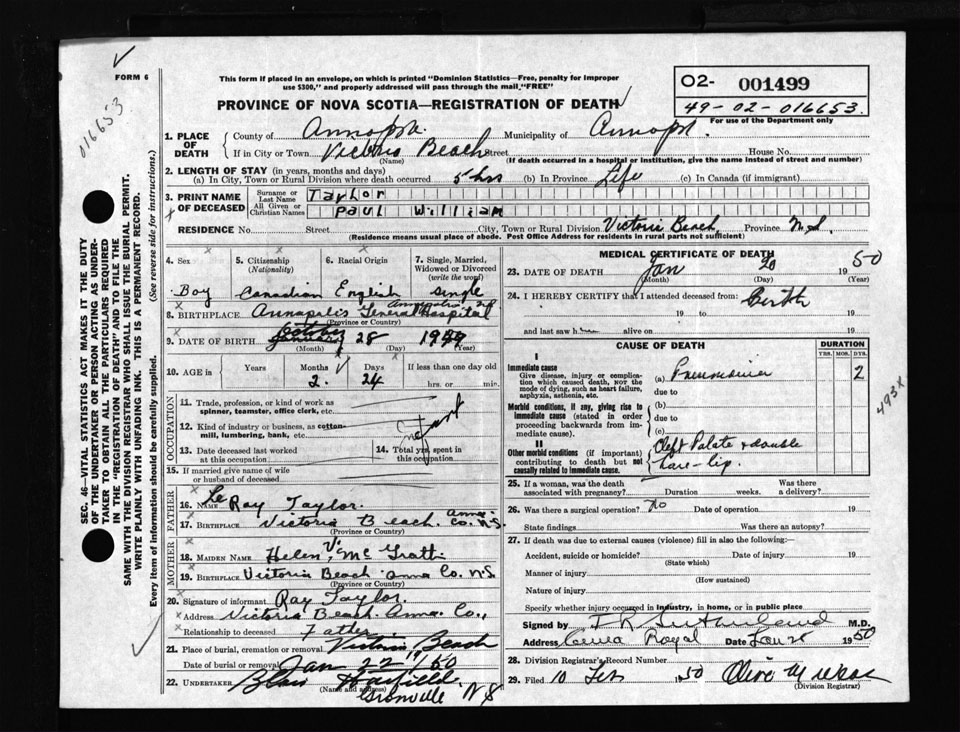 FORM 6
This form if placed in an envelope, on which is printed "Dominion Statistics—Free, penalty for improper
use $300," and properly addressed will pass through the mail "FREE"
02- 001499
49-02-016653
For use of the Department only
016653
PROVINCE OF NOVA SCOTIA—REGISTRATION OF DEATH
1. PLACE OF DEATH
County of Municipality of
If in City or Town Victoria Beach Street House No.
(Name) (If death occurred in a hospital or institution, give the name instead of street and number)
2. LENGTH OF STAY (in years, months and days)
(a) In City, Town or Rural Division where death occurred 5 hrs (b) In Province Life (c) In Canada (if immigrant)
3. PRINT NAME OF DECEASED
Surname or Last Name Taylor
All Given or Christian Names Paul William
RESIDENCE No. Street City, Town or Rural Division Victoria Beach, Province N.S.
(Residence means usual place of abode. Post Office Address for residents in rural parts not sufficient)
4. Sex
Boy
5. Citizenship (Nationality)
Canadian
6. Racial Origin
English
7. Single, Married, Widowed or Divorced (write the word)
Single
8. BIRTHPLACE Annapolis General Hospital
(Province or Country)
October
9. DATE OF BIRTH January 28 1949
(Month) (Day) (Year)
10. AGE in Years Months Days If less than one day old
2. 24 hrs. or min.
OCCUPATION
11. Trade, profession, or kind of work as spinner, teamster, office clerk, etc.
12. Kind of industry or business, as cotton-mill, lumbering, bank, etc.
Infant
13. Date deceased last worked at this occupation
14. Total yrs. spent in this occupation
15. If married give name of wife or husband of deceased
FATHER
16. Name Le Roy Taylor.
17. BIRTHPLACE Victoria Beach. Anna. Co. N.S.
(Province or Country)
MOTHER
18. MAIDEN NAME Helen V. Mc Gratt.
19. BIRTHPLACE Victoria Beach Anna Co. N.S.
(Province or Country)
20. Signature of informant Ray Taylor.
Address Victoria Beach Anna. Co.,
Relationship to deceased Father
21. Place of burial, cremation or removal Victoria Beach
Date of burial or removal Jan 22"/50
22. UNDERTAKER Blair
(Name and address)
N S
MEDICAL CERTIFICATE OF DEATH
23. DATE OF DEATH Jan 20 1950
(Month) (Day) (Year)
24. I HEREBY CERTIFY that I attended deceased from: Birth
19 to 19
and last saw h alive on 19
CAUSE OF DEATH
DURATION
YRS. MOS. DYS.
I
Immediate cause
Give disease, injury or complication which caused death, NOT the mode of dying, such as heart failure, asphyxia, asthenia, etc.
(a) Pneumonia 2
due to
Morbid conditions, if any, giving rise to immediate cause (stated in order proceeding backwards from immediate cause).
(b)
due to
(c)
II
Other morbid conditions (if important) contributing to death but not causally related to immediate cause.
Cleft Palate & double
hare-lip.
493X
25. If a woman, was the death associated with pregnancy? Duration weeks. Was there a delivery?
26. Was there a surgical operation? no Date of operation 19
State findings Was there an autopsy?
27. If death was due to external causes (violence) fill in also the following:—
Accident, suicide or homicide? Date of injury 19
(State which)
Manner of injury
(How sustained)
Nature of injury
Specify whether injury occurred in industry, in home, or in public place
Signed by M.D.
Address Anna Royal Date 1950
28. Division Registrar's Record Number
29. Filed 10 Feb 1950
(Division Registrar)
SEC. 46—VITAL STATISTICS ACT MAKES IT THE DUTY
OF THE UNDERTAKER OR PERSON ACTING AS UNDERTAKER TO OBTAIN ALL THE PARTICULARS REQUIRED
IN THE "REGISTRATION OF DEATH" AND TO FILE THE
SAME WITH THE DIVISION REGISTRAR WHO SHALL ISSUE THE BURIAL PERMIT.
WRITE PLAINLY WITH UNFADING INK. THIS IS A PERMANENT RECORD.
Every item of information should be carefully supplied. (See reverse side for instructions.)